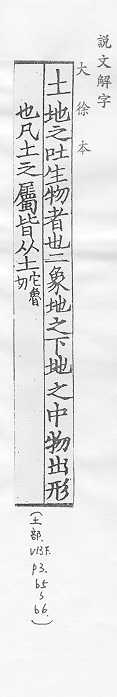 說文解字
大徐本
土地之吐生物者也二象地之下地之中物出形
也凡土之屬皆从土它魯切
(土部.
V13下.
p3.
b5
〜
b6.)